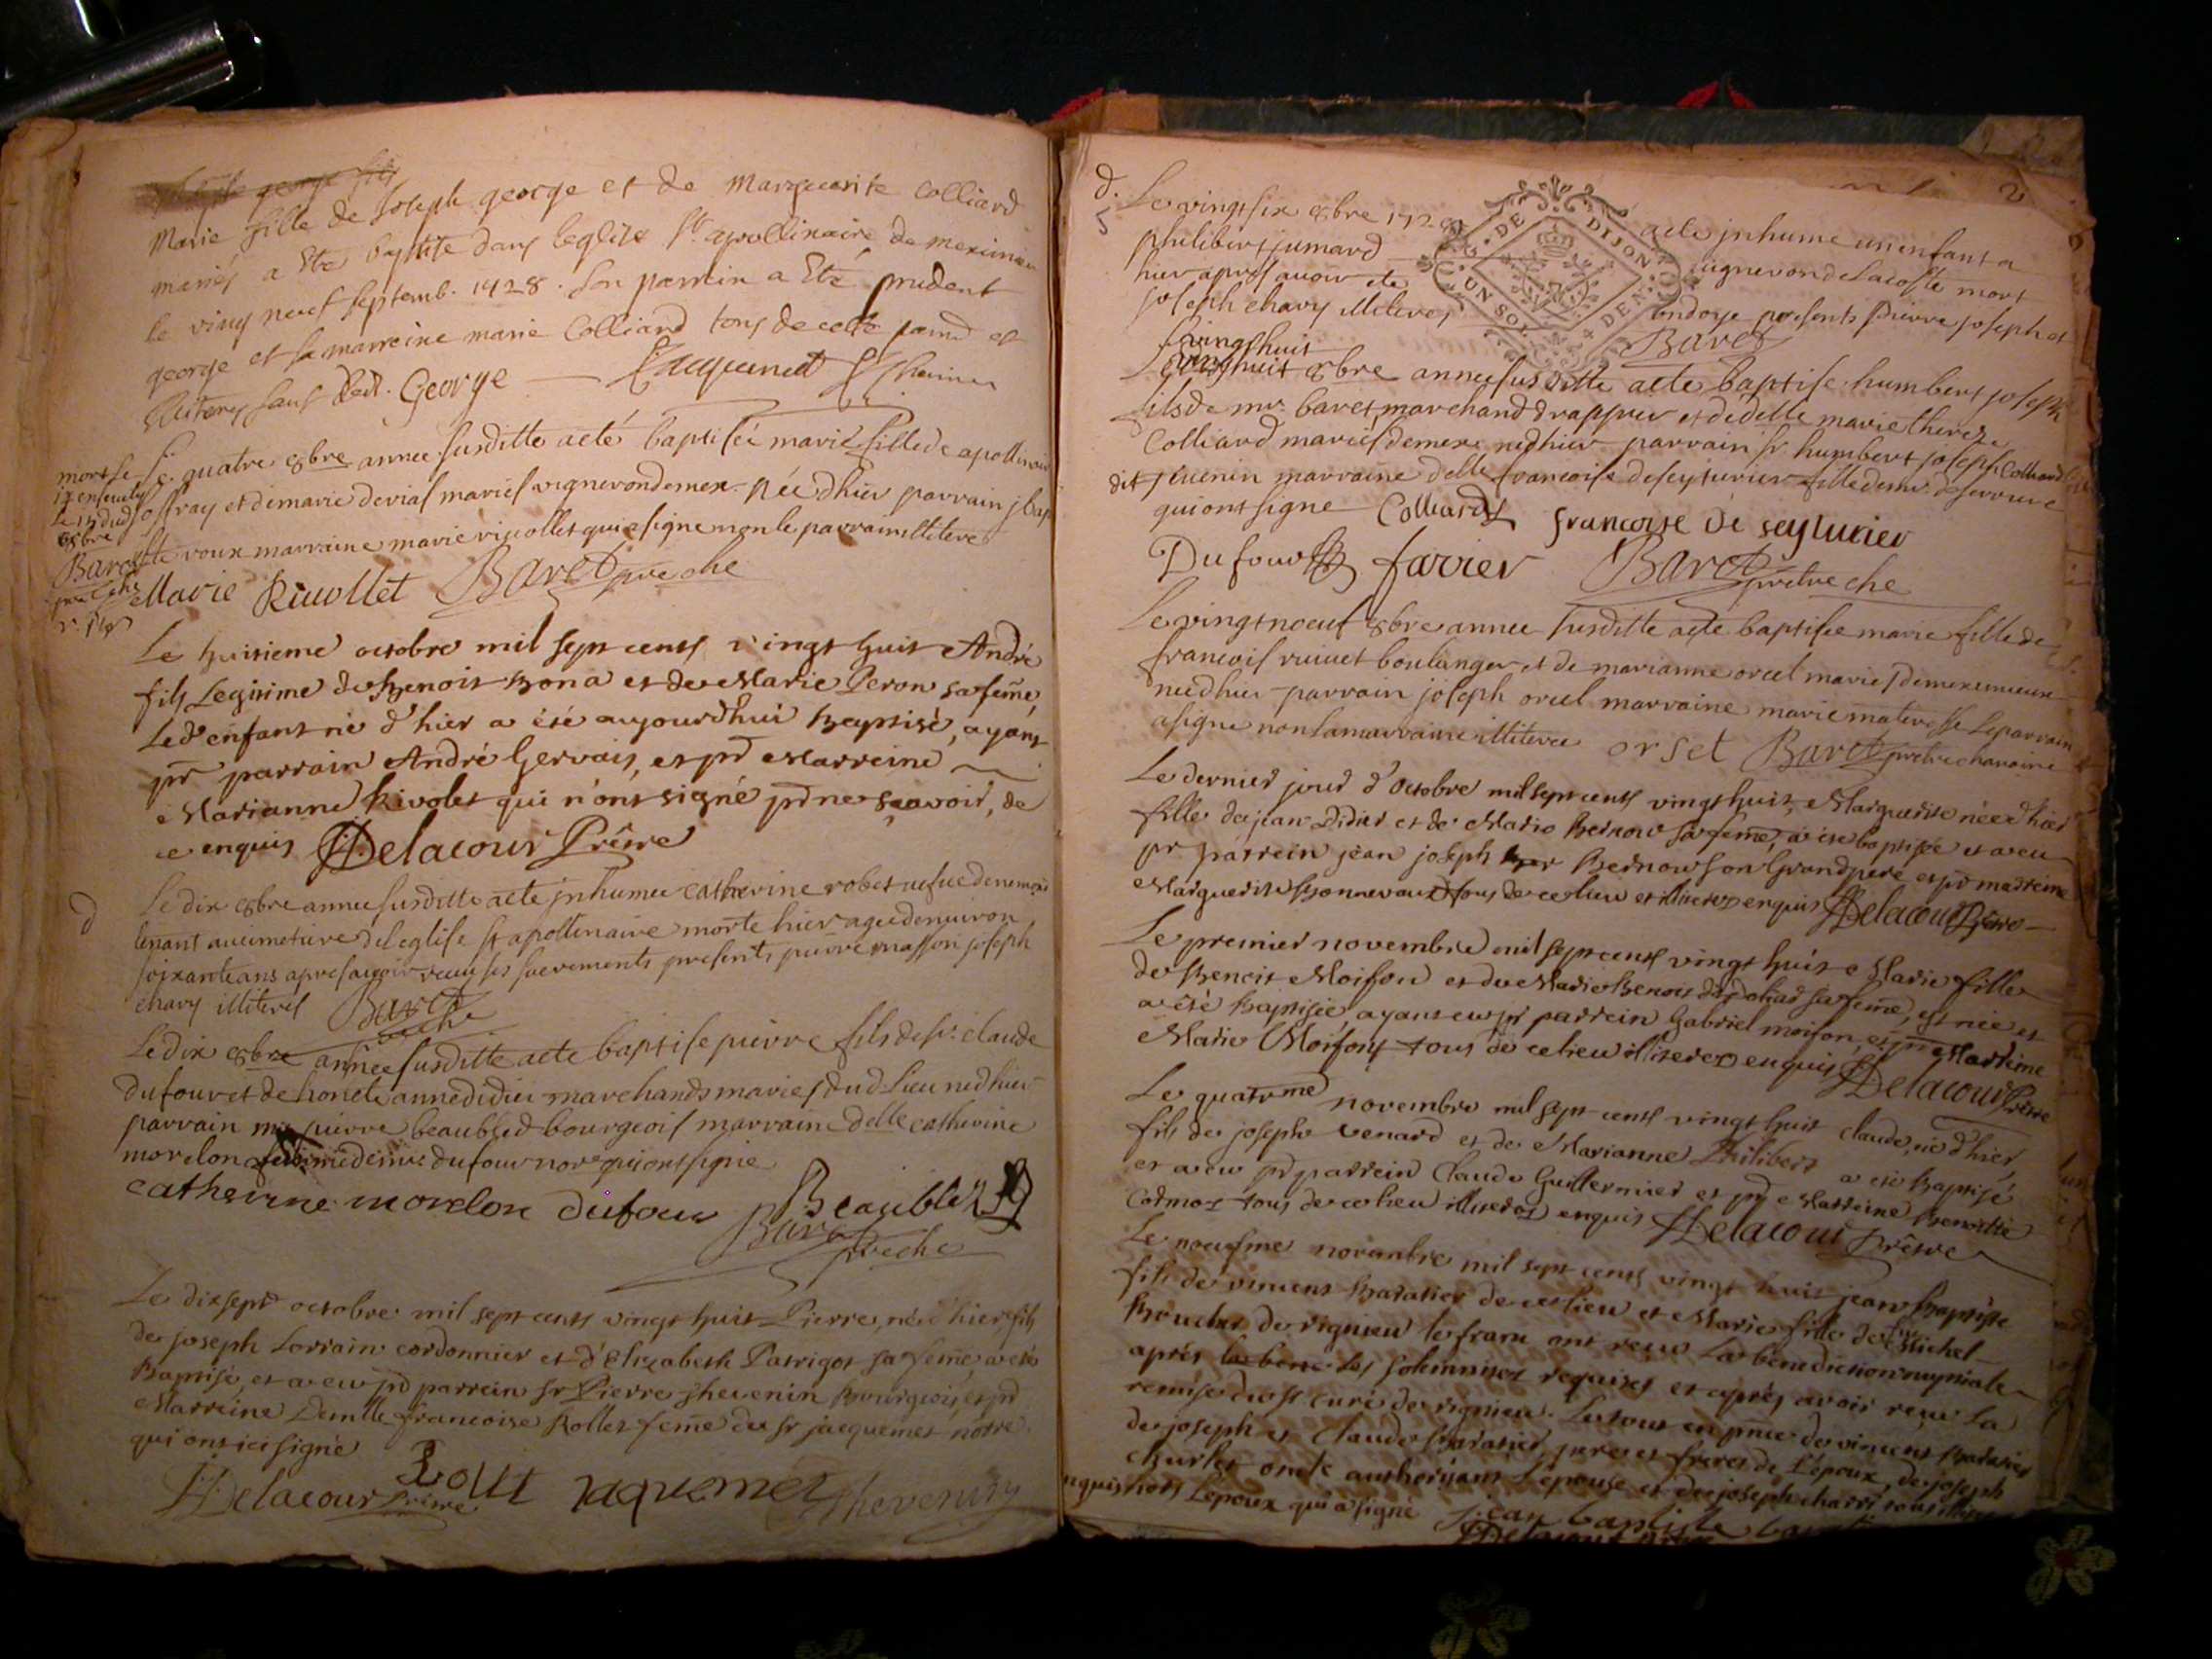 Marie fille de Joseph george et de Marguerite Colliard
mariés a Eté baptisée dans leglise St. apollinaire de meximieu
le vingt neuf septemb. 1728. Son parrein a Eté prudent
george et sa marreine marie Colliard tous de cette
illiteres sauf led. George Jacquemet
morte et
ensevelie
8bre
Baret
Le quatre 8bre annee susditte aeté baptiseé marie fille de apollinaire
joffray et de marie devias mariés vigneron de mex. née d'hier parrain j bap
tiste roux marraine marie rivollet qui a signe non le parrain illitere
Marie Rivollet Baret pre che
Le huitieme octobre mil sept cents vingt huit André
fils Legitime de Benoit Bona et de Marie Peron sa feme,
Led enfant né d'hier a été aujourdhui Baptisé, ayant
pr parrain André Gervais, et pr Marreine
Marianne Rivolet qui n'ont signé pr ne sçavoir, de
ce enquis Delacour Prêtre
d
Le dix 8bre annee susditte aeté jnhumeé catherine robet
tenant au cimetiere de leglise St apollinaire morte hier agee denviron
soixante ans apres avoir receu ses sacrements presents pierre masson joseph
chavy illiteres Baret
pre che
Le dix 8bre année susditte aeté baptise pierre fils de sr. claude
dufour et de honete anne didier marchands mariés dud. Lieu né d hier
parrain mr pierre beaubled bourgeois marraine delle catherine
morelon femme de mr dufour nore qui ont signe
catherine morelon dufour Beaubled
Baret pre che
Le dixsept octobre mil sept cents vingt huit Pierre, né d'hier fils
de joseph Lorrain cordonnier et d'Elizabeth Patrigot sa feme, a eté
Baptisé, et a eu pr parrein sr Pierre thevenin Bourgeois, et pr
Marreine Demlle françoise Rollet feme du sr jacquemet notre
qui ont ici signé
Delacour Prêtre Rollet jaquemet thevenin
2
d.
5
Le vingt six 8bre 172 aeté jnhume un enfant a
philibert jumard vigneron de Lacoste mort
hier apres avoir ete ondoye presents pierre joseph et
joseph chavy illiteres Baret
DE DIJON
UN SOL 4 DEN
Le vingt huit
vingt huit 8bre annee susditte aeté baptise humbert joseph
fils de mr. baret marchand drappier et de delle marie therese
Colliard mariés de mex. né d hier parrain sr humbert joseph Colliard
dit guenin marraine delle francoise de seyturier fille de mr de serrere
qui ont signe Colliard francoise de seyturier
Dufour farrier Baret pretre che
Le vingt noeuf 8bre annee susditte aeté baptisee marie fille de
francois rivuet boulanger et de marianne orcel mariés de meximieux
neé d hier parrain joseph orcel marraine marie materesse le parrain
a signe non la marraine illiteree orsel Baret pretre chanoine
Le dernier jour d'octobre mil sept cents vingt huit, Marguerite née d'hier
fille de jean Didier et de Marie Bernow sa feme, a été baptisée et a eu
pr parrein jean joseph Bernow son Grandpere et pr marreine
Marguerite Bonnevaux tous de ce lieu et illiterez enquis Delacour Prêtre
Le premier novembre mil sept cents vingt huit Marie fille
de Benoit Moifon et de Marie Benoit sa feme, est née et
a été Baptisée ayant eu pr parrein Gabriel moifon, et pr Marreine
Marie Moifon tous de ce lieu illiterez enquis Delacour Prêtre
Le quatrme novembre mil sept cents vingt huit claude, né d'hier,
fils de joseph Venard et de Marianne Philibert a été Baptisé
et a eu pr parrein Claude Guillermier et pr Marreine Benoitte
Cormoz tous de ce lieu illiterez enquis Delacour Prêtre
Le noeufme novembre mil sept cents vingt huit jean Baptiste
fils de vincent Baratier de ce lieu et Marie fille de Michel
Boucher de rignieu le franc ont receu La benediction nuptiale
après les solemnitez requises et après avoir receu La
remise du sr curé de rignieu. Le tout en pnce de vincent Baratier
de joseph et Claude Baratier, pere et freres de L'époux, de joseph
charles oncle authorisant L'epouse et de joseph charri tous illiterez
enquis hors L'epoux qui a signé jean baptiste